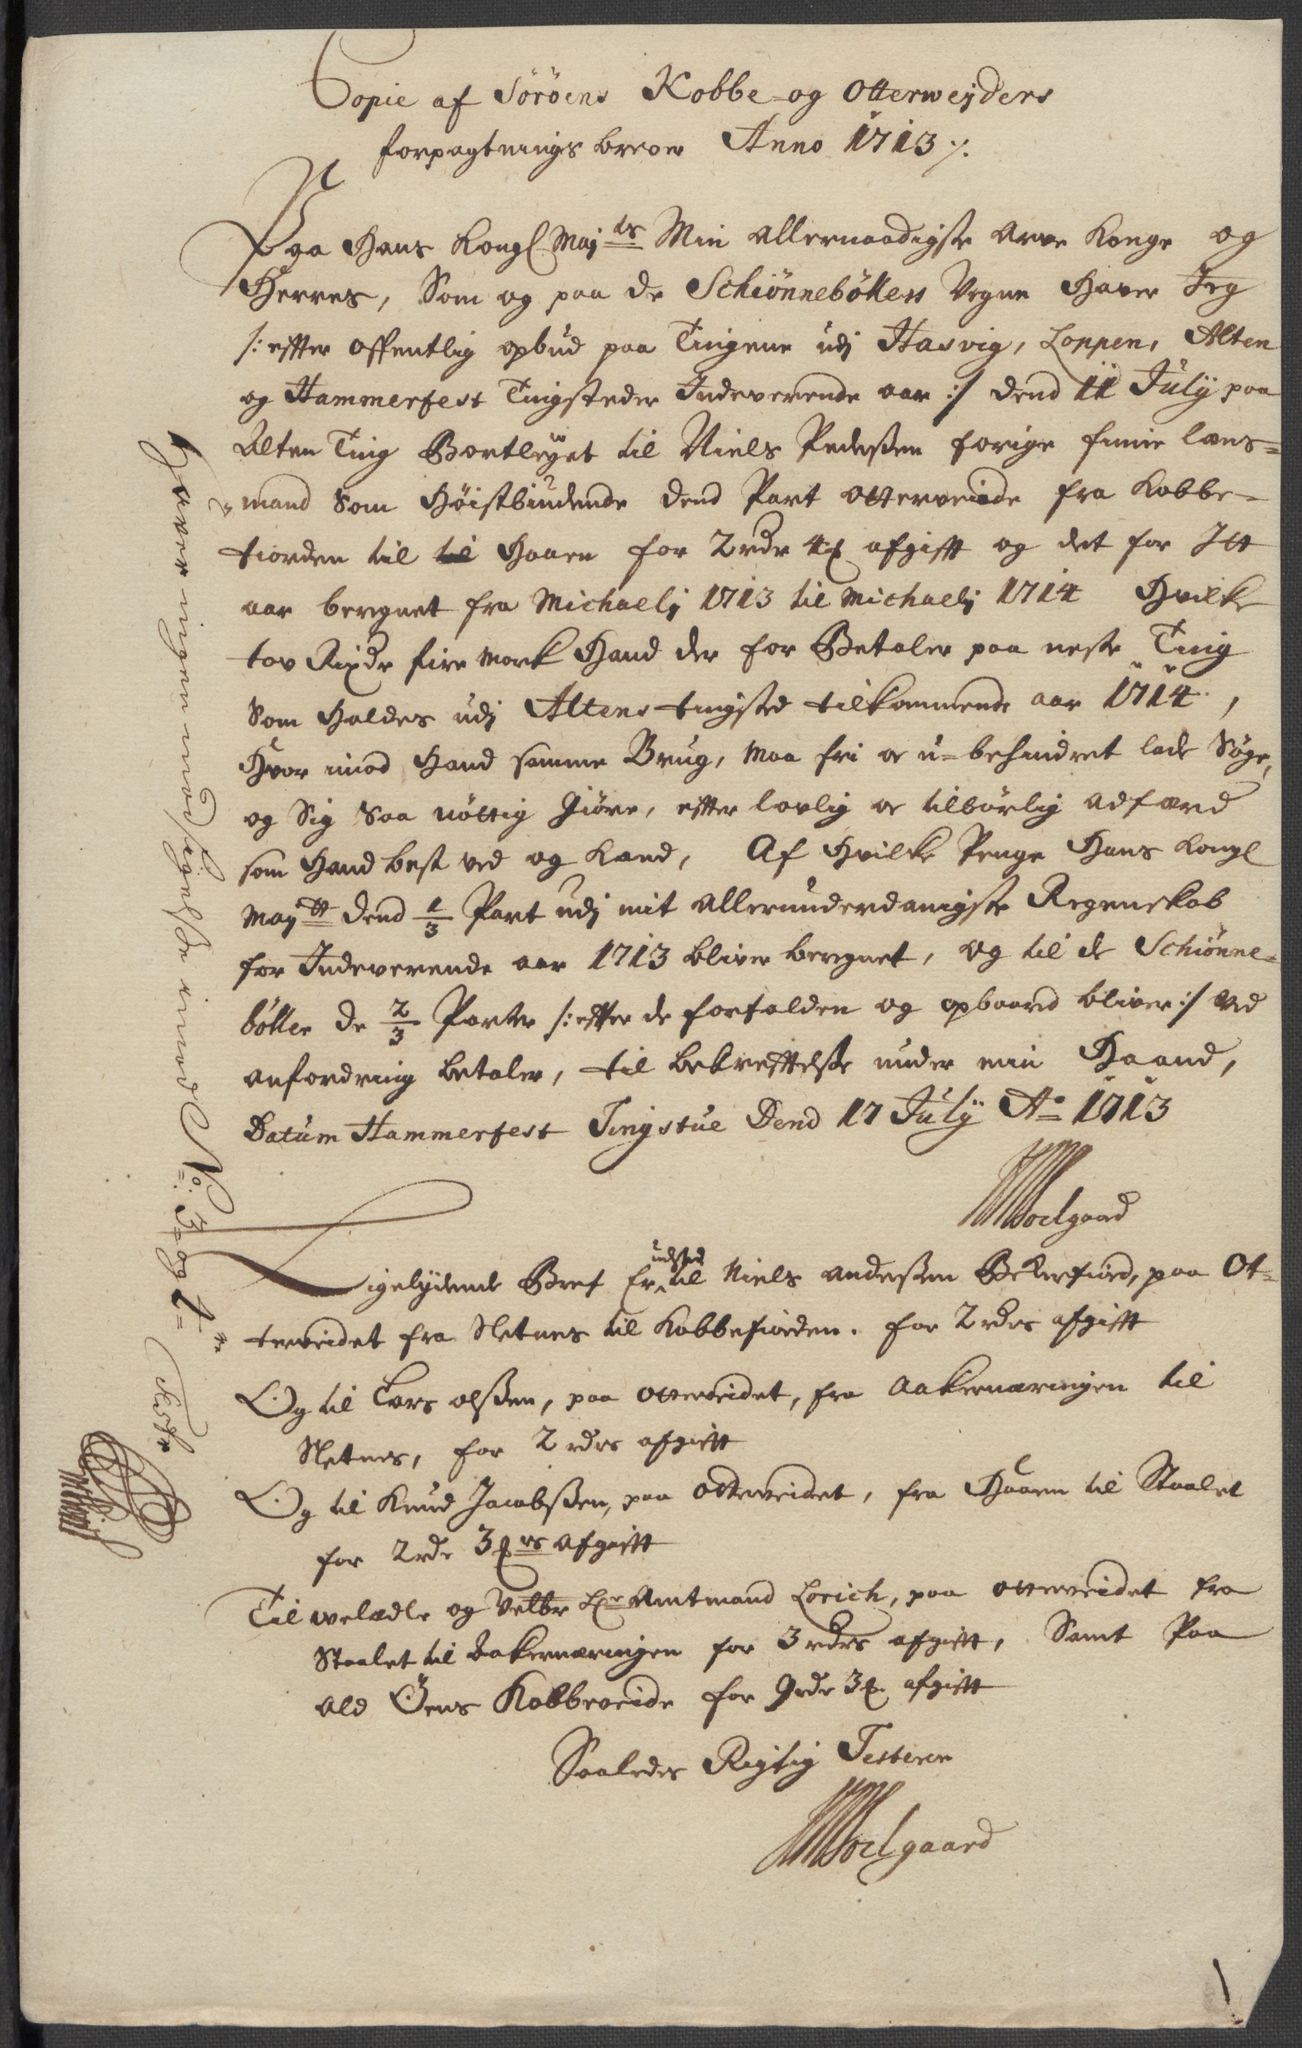 Copie af Söröens Kobbe- og Otterweÿders
forpagtnings brever Anno 1713 ⁒
Paa Hans Kongl Maj.ts Min allernaadigste Arve Konge og
Herres, Som og paa de Schiönnebölless Vegne Haver Jeg
/: effter offentlig opbud paa Tingene udj Hasvig, Loppen, Alten
og Hammerfest Tingsteder Indeverende aar :/ dend 11 Julÿ paa
Alten Ting Bortleyet til Niels Pedersen forige finne læns-
mand Som Höistbiudende dend Part otterveide fra Kobbe-
fiorden til Haaen for 2 rdr 4 ꝸ afgifft og det for Itt
aar beregnet fra Michaelj 1713 til Michaelj 1714 Hvilke
tov Rixdr fire mork Hand der for Betaler paa neste Ting
Som Holdes udj Altens tingsted tilkommende aar 1714,
Hvor imod Hand samme Brug, maa fri oc u-behindret lade Söge,
og Sig Saa nöttig giöre, effter lovlig oc tilbörlig adfærd
som Hand best ved og kand, Af Hvilke Penge Hans Kongl
May.tt dend 1/3 Part udj mit allerunderdanigste Regenskab
for Indeverende aar 1713 bliver beregnet, og til de Schiönne-
böller de 2/3 Parter /: effter de forfalden og opbaaret bliver :/ ved
anfordring betaler, til bekrefftelsse under min Haand,
Datum Hammerfest Tingstue Dend 17 Julÿ Ao 1713
Soelgaard
Ligelydende Bref er udsted til Niels Andersen Bekerfiord, paa Ot-
terveidet fra Sletnes til Kobbefiorden. for 2 rdrs afgifft
Og til Lars olssen, paa otterveidet, fra Aakernæringen til
Sletnes, for 2 rdrs afgifft
Og til Knud Jacobssen, paa otterveidet, fra Haaen til Staalet
for 2 rdr 3 ꝸrs afgifft
Til welædle og Velbr Hr Amtmand Lorich, paa otterveidet fra
Staalet til Aakernæringen for 3 rdrs afgifft, Samt Paa
ald Öens Kobbeveide for 9 rdr 3 ꝸ afgifft
Saaledes Rigtig Testerer
Soelgaard
Haver ingen modsigelse imod No: 3 og 4